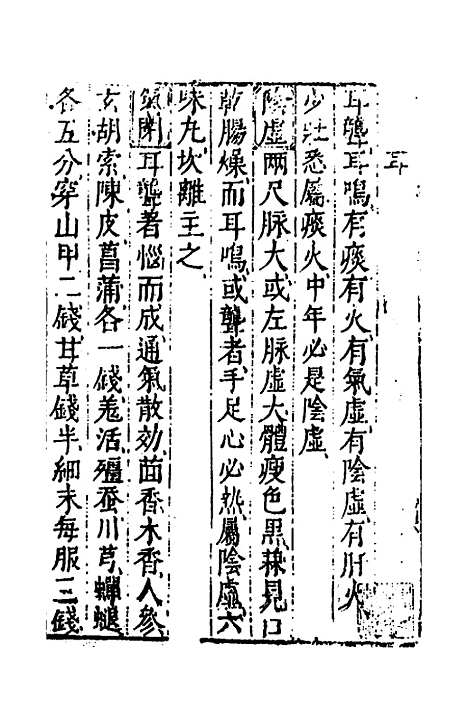 耳
耳聾耳鳴有痰有火有氣虛有陰虛有肝火
少壯悉屬痰火中年必是陰虛
陰虛兩尺脉大或左脉虛大體瘦色黑兼見口
乾腸燥而耳鳴或聾者手足心必熱屬陰虛六
味丸坎離主之
氣閉耳聾者惱而成通氣散効茴香木香人參
玄胡索陳皮菖蒲各一錢羗活殭蚕川芎蟬蛻
各五分穿山甲二錢甘草錢半細末每服三錢